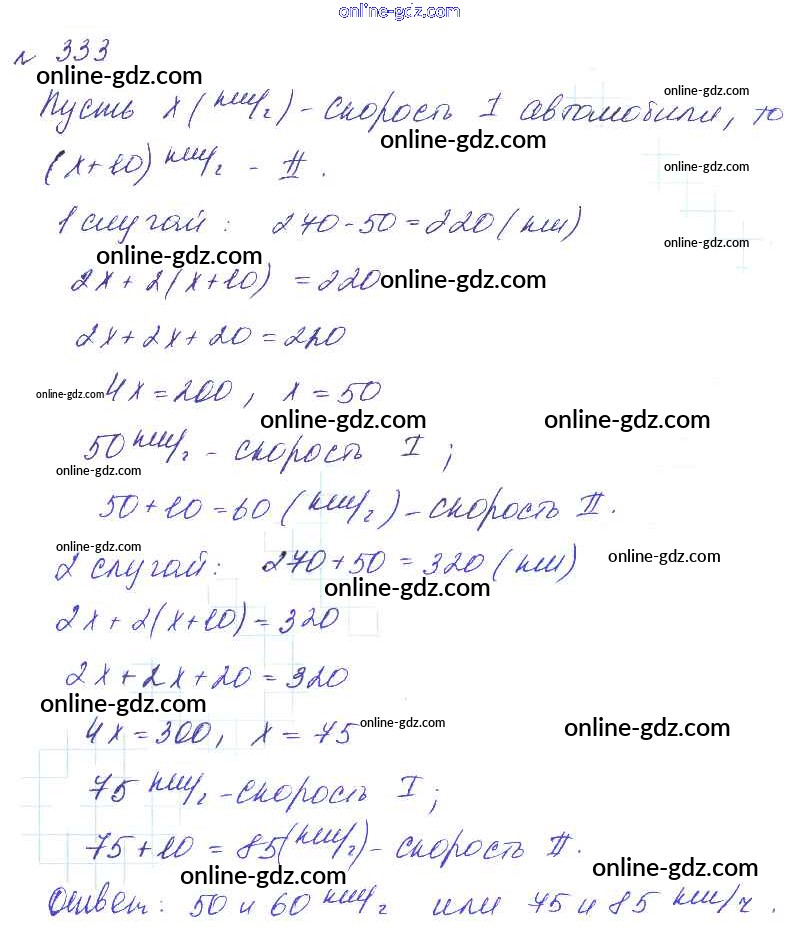 online-gdz.com
№ 333
online-gdz.com
online-gdz.com
Пусть x (км/г) - скорость I автомобиля, то
online-gdz.com
online-gdz.com
(x+10) км/г - II.
online-gdz.com
1 случай: 270-50=220 (км)
online-gdz.com
online-gdz.com
2x + 2(x+10) = 220
online-gdz.com
2x+2x+20=220
online-gdz.com
4x=200, x=50
online-gdz.com
online-gdz.com
50 км/г - скорость I;
online-gdz.com
50+10=60 (км/г) - скорость II.
online-gdz.com
online-gdz.com
2 случай: 270+50=320 (км)
online-gdz.com
2x+2(x+10)=320
2x+2x+20=320
online-gdz.com
4x=300, x=75
online-gdz.com
online-gdz.com
75 км/г - скорость I;
75+10=85 (км/г) - скорость II.
online-gdz.com
online-gdz.com
Ответ: 50 и 60 км/г или 75 и 85 км/ч.